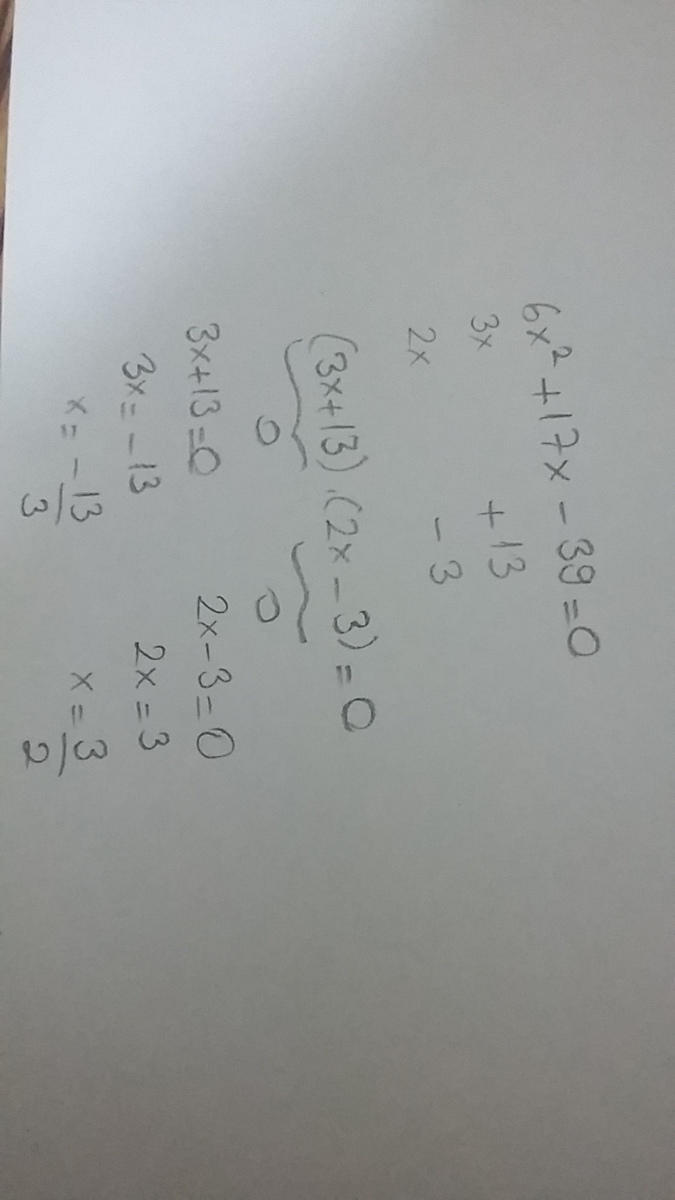 6x² + 17x - 39 = 0
3x +13
2x -3
(3x+13).(2x-3) = 0
0 0
3x+13=0 2x-3=0
3x=-13 2x=3
x=-13/3 x=3/2